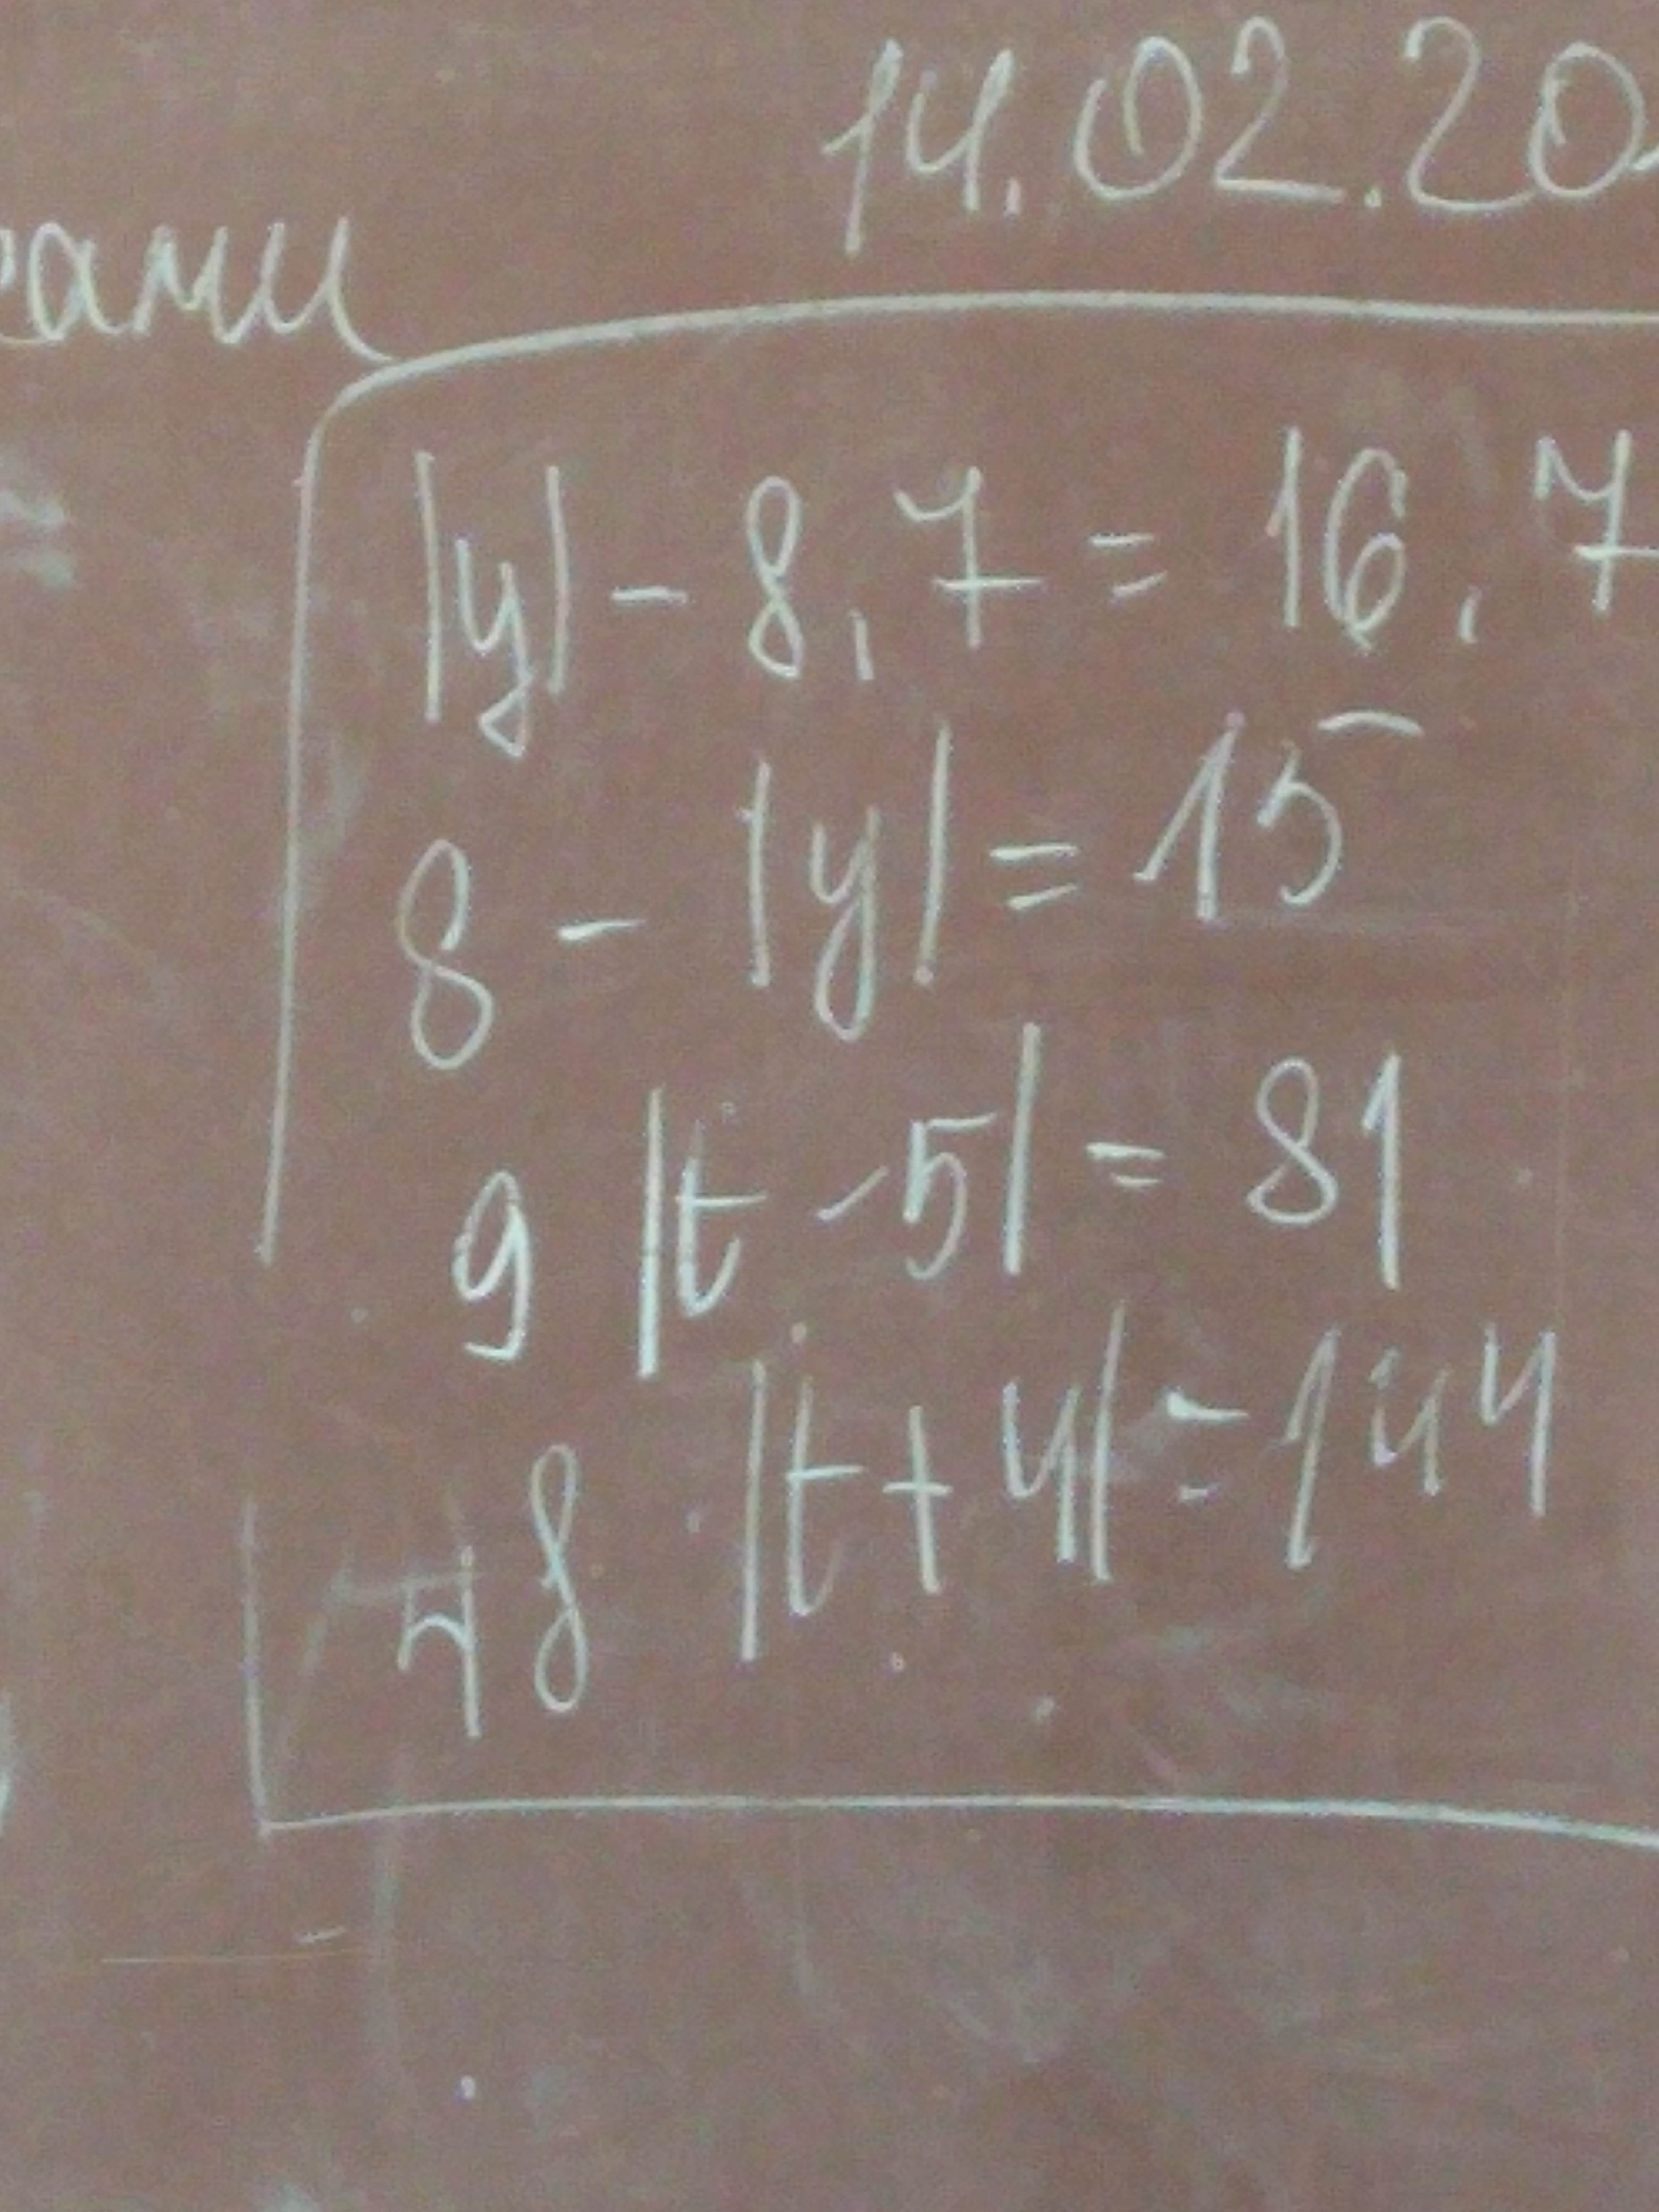 14.02.20
|y| - 8,7 = 16,7
8 - |y| = 15
9 |t - 5| = 81
48 |t + 4| = 144